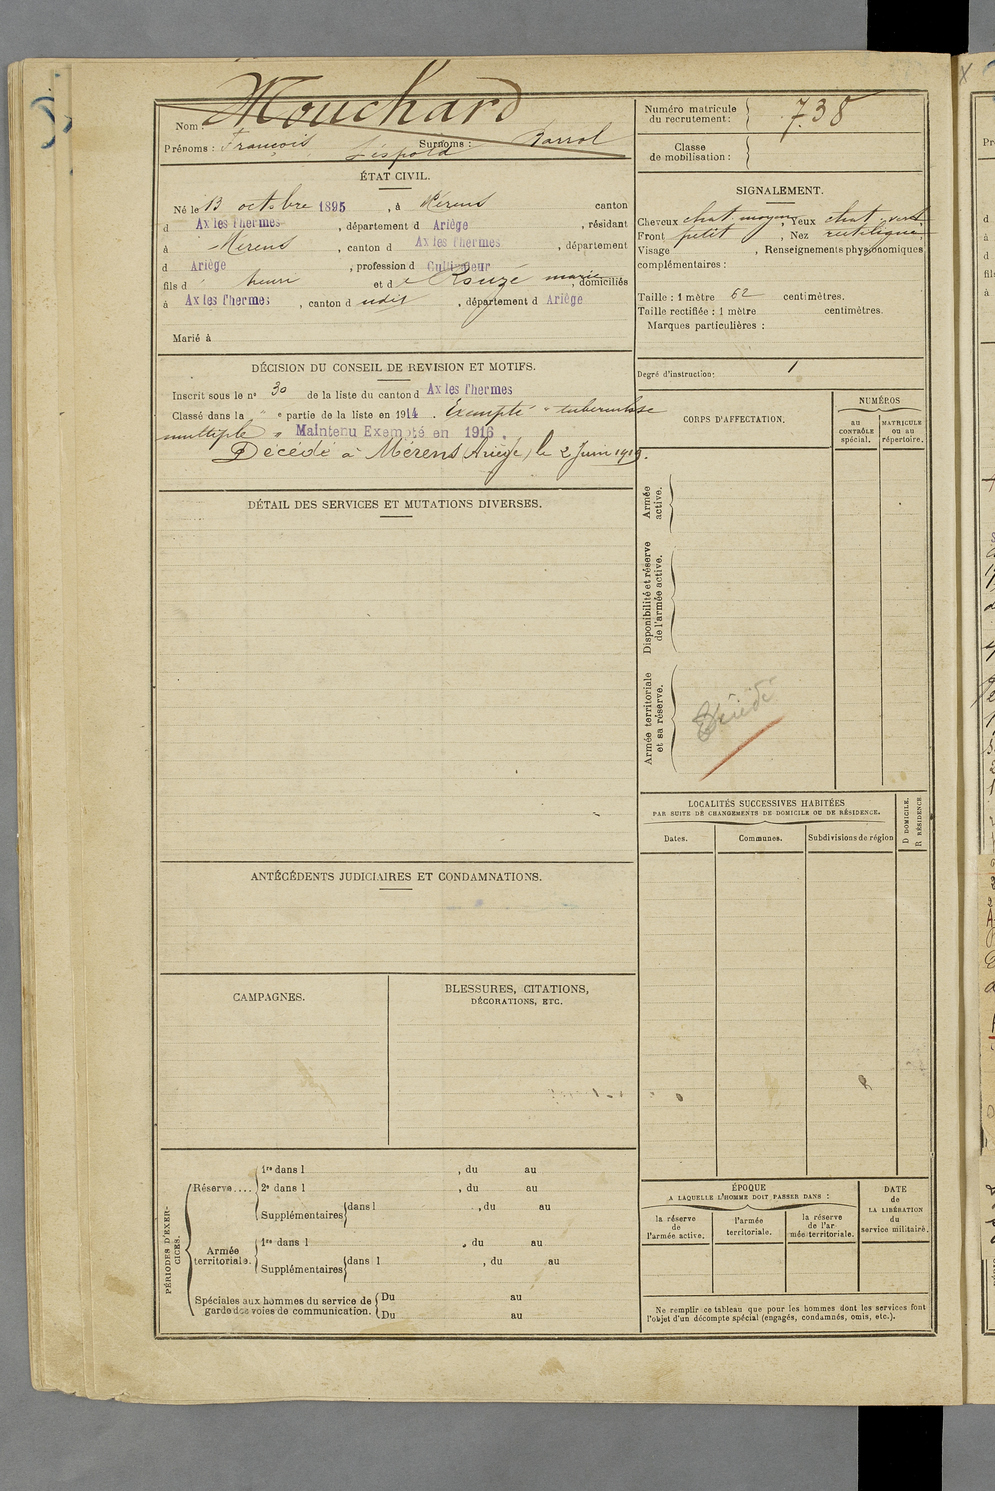 Mouchard
Nom :
Prénoms : François Léopold Surnoms : Barrol
ÉTAT CIVIL.
Né le 13 octobre 1895, à Mérens canton
d Ax les Thermes, département d Ariège, résidant
à Mérens, canton d Ax les Thermes, département
d Ariège, profession d Cultivateur
fils d henri et d e Rouzé marie, domiciliés
à Ax les Thermes, canton d udit, département d Ariège
Marié à
DÉCISION DU CONSEIL DE REVISION ET MOTIFS.
Inscrit sous le nº 30 de la liste du canton d Ax les Thermes
Classé dans la " e partie de la liste en 1914. Exempté " tuberculose
multiple " Maintenu Exempté en 1916.
Décédé à Mérens (Ariège) le 2 Juin 1919.
DÉTAIL DES SERVICES ET MUTATIONS DIVERSES.
ANTÉCÉDENTS JUDICIAIRES ET CONDAMNATIONS.
CAMPAGNES.
BLESSURES, CITATIONS,
DÉCORATIONS, ETC.
PÉRIODES D'EXER-
CICES.
Réserve....
1re dans l , du au
2e dans l , du au
Supplémentaires dans l , du au
Armée
territoriale.
1re dans l , du au
Supplémentaires dans l , du au
Spéciales aux hommes du service de
garde des voies de communication.
Du au
Du au
Numéro matricule
du recrutement :
738
Classe
de mobilisation :
SIGNALEMENT.
Cheveux chat moyen, Yeux chat verd
Front petit, Nez rectiligne,
Visage , Renseignements physionomiques
complémentaires :
Taille : 1 mètre 62 centimètres.
Taille rectifiée : 1 mètre centimètres.
Marques particulières :
Degré d'instruction: 1
CORPS D'AFFECTATION.
NUMÉROS
au
CONTRÔLE
spécial.
MATRICULE
OU AU
répertoire.
Armée
active.
Disponibilité et réserve
de l'armée active.
Armée territoriale
et sa réserve.
Décédé
LOCALITÉS SUCCESSIVES HABITÉES
PAR SUITE DE CHANGEMENTS DE DOMICILE OU DE RÉSIDENCE.
Dates.
Communes.
Subdivisions de région
D DOMICILE.
R RÉSIDENCE
ÉPOQUE
A LAQUELLE L'HOMME DOIT PASSER DANS :
la réserve
de
l'armée active.
l'armée
territoriale.
la réserve
de l'ar-
mée territoriale.
DATE
de
LA LIBÉRATION
du
service militaire.
Ne remplir ce tableau que pour les hommes dont les services font
l'objet d'un décompte spécial (engagés, condamnés, omis, etc.).